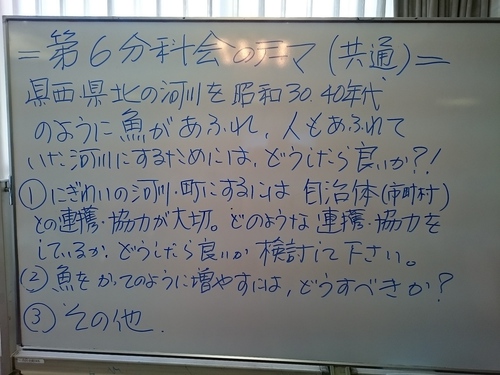 =第6分科会のテーマ(共通)=
県西・県北の河川を昭和30.40年代
のように魚があふれ、人もあふれて
いた河川にするためには、どうしたら良いか?!
①にぎわいの河川・町にするには自治体(市町村)
との連携・協力が大切。どのような連携・協力を
しているか、どうしたら良いか検討して下さい。
②魚をかつてのように増やすには、どうすべきか?
③その他.